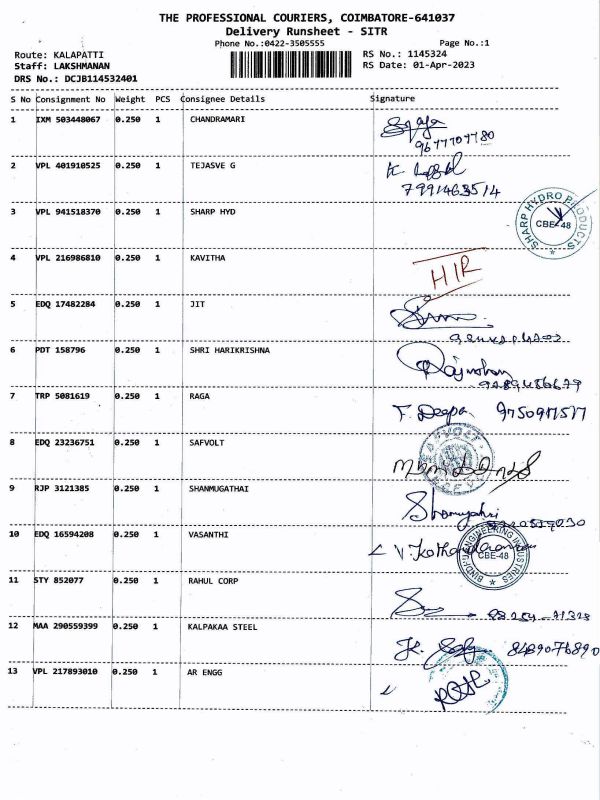 THE PROFESSIONAL COURIERS, COIMBATORE-641037
Delivery Runsheet - SITR
Phone No.:0422-3505555 Page No.:1
Route: KALAPATTI RS No.: 1145324
Staff: LAKSHMANAN RS Date: 01-Apr-2023
DRS No.: DCJB114532401
S No Consignment No Weight PCS Consignee Details Signature
1 IXM 503448067 0.250 1 CHANDRAMARI
9677707780
2 VPL 401910525 0.250 1 TEJASVE G
7991463514
3 VPL 941518370 0.250 1 SHARP HYD
SHARP HYDRO PRODUCTS
CBE-48
4 VPL 216986810 0.250 1 KAVITHA
HIR
5 EDQ 17482284 0.250 1 JIT
6 PDT 158796 0.250 1 SHRI HARIKRISHNA
7 TRP 5081619 0.250 1 RAGA
T. Deepa
8 EDQ 23236751 0.250 1 SAFVOLT
9 RJP 3121385 0.250 1 SHANMUGATHAI
10 EDQ 16594208 0.250 1 VASANTHI
ENGINEERING INDUSTRIES
CBE-48
11 STY 852077 0.250 1 RAHUL CORP
12 MAA 290559399 0.250 1 KALPAKAA STEEL
8489076890
13 VPL 217893010 0.250 1 AR ENGG